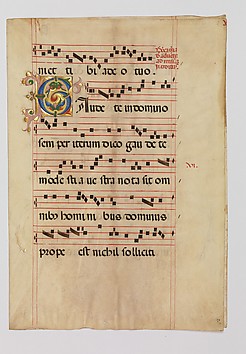 niet ti bi a deo tuo.
Gaude te in domino
sem per iterum dico gau de te
mode stia ue stra nota sit om
nibus homini bus dominus
prope est nichil solliciti